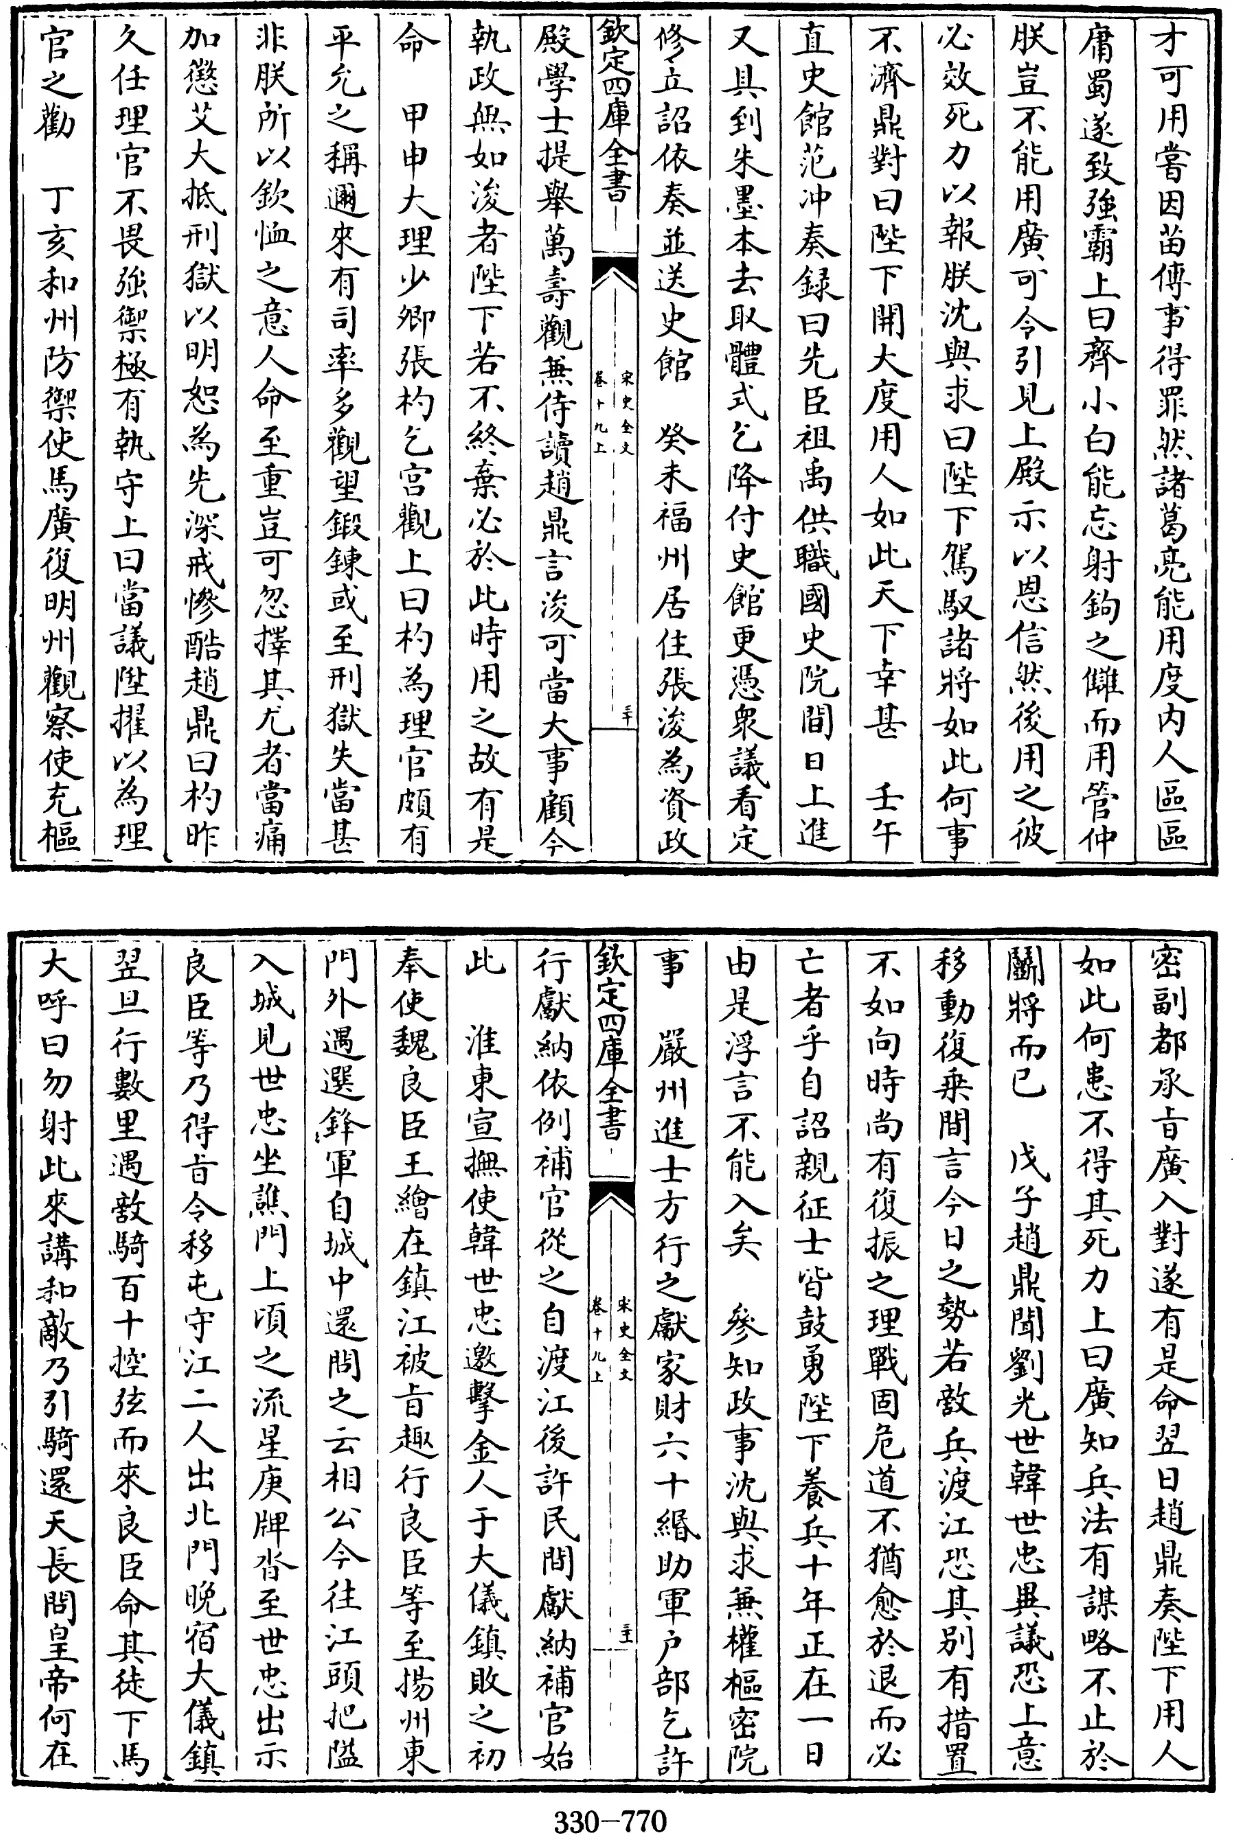 才可用嘗因苗傅事得罪然諸葛亮能用度内人區區
庸蜀遂致強霸上曰齊小白能忘射鉤之讎而用管仲
朕豈不能用廣可令引見上殿示以恩信然後用之彼
必效死力以報朕沈與求曰陛下駕馭諸將如此何事
不濟鼎對曰陛下開大度用人如此天下幸甚　壬午
直史館范冲奏録曰先臣祖禹供職國史院間日上進
又具到朱墨本去取體式乞降付史館更憑衆議看定
修立詔依奏並送史館　癸未福州居住張浚為資政
欽定四庫全書
宋史全文
卷十九上
三十
殿學士提舉萬壽觀兼侍讀趙鼎言浚可當大事顧今
執政無如浚者陛下若不終棄必於此時用之故有是
命　甲申大理少卿張杓乞宫觀上曰杓為理官頗有
平允之稱邇來有司率多觀望鍛鍊或至刑獄失當甚
非朕所以欽恤之意人命至重豈可忽擇其尤者當痛
加懲艾大抵刑獄以明恕為先深戒慘酷趙鼎曰杓昨
久任理官不畏強禦極有執守上曰當議陞擢以為理
官之勸　丁亥和州防禦使馬廣復明州觀察使充樞
密副都承旨廣入對遂有是命翌日趙鼎奏陛下用人
如此何患不得其死力上曰廣知兵法有謀略不止於
鬭將而已　戊子趙鼎聞劉光世韓世忠異議恐上意
移動復乘間言今日之勢若敵兵渡江恐其别有措置
不如向時尚有復振之理戰固危道不猶愈於退而必
亡者乎自詔親征士皆鼓勇陛下養兵十年正在一日
由是浮言不能入矣　參知政事沈與求兼權樞密院
事　嚴州進士方行之獻家財六十緡助軍户部乞許
欽定四庫全書
宋史全文
卷十九上
三十一
行獻納依例補官從之自渡江後許民間獻納補官始
此　淮東宣撫使韓世忠邀擊金人于大儀鎮敗之初
奉使魏良臣王繪在鎮江被旨趣行良臣等至揚州東
門外遇選鋒軍自城中還問之云相公今往江頭把隘
入城見世忠坐譙門上頃之流星庚牌沓至世忠出示
良臣等乃得旨令移屯守江二人出北門晚宿大儀鎮
翌旦行數里遇敵騎百十控弦而來良臣命其徒下馬
大呼曰勿射此來講和敵乃引騎還天長問皇帝何在
330-770